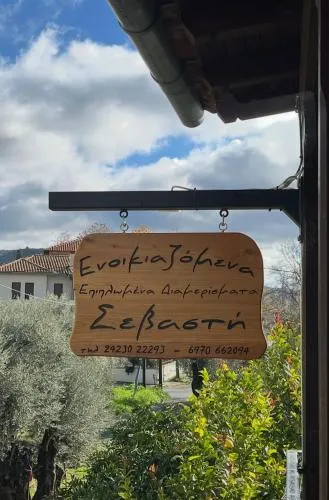 Ενοικιαζόμενα
Επιπλωμένα Διαμερίσματα
Σεβαστή
τηλ 24230 22293 - 6970 662094